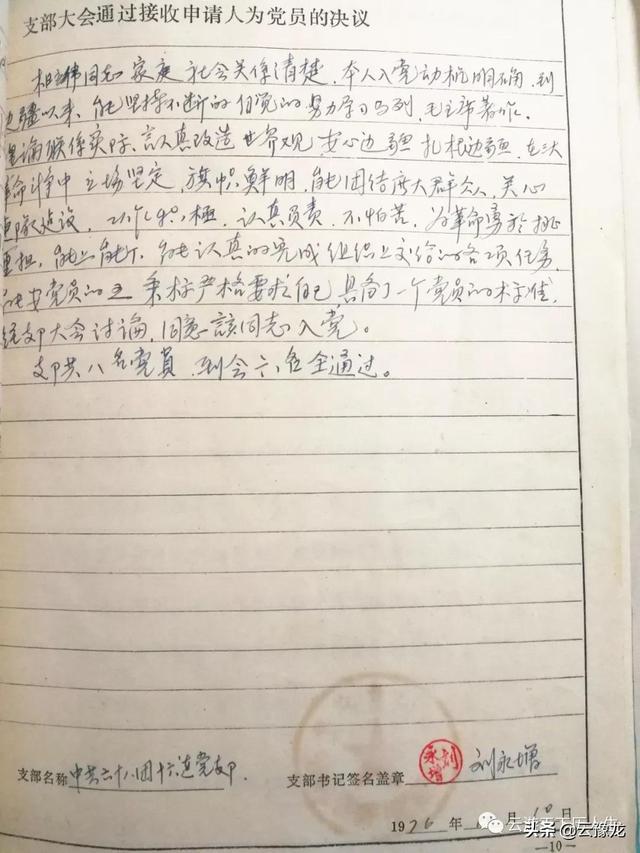 支部大会通过接收申请人为党员的决议
同志家庭社会关係清楚,本人入党动机明确,到
边疆以来,能坚持不断的自觉的努力学习马列毛主席著作,
理论联係实际,认真改造世界观,安心边疆扎根边疆,在三大
革命斗争中立场坚定,旗帜鲜明,能团结广大群众,关心
连队建设,工作积極,认真负责,不怕苦,为革命勇於挑
重担,能上能下,能认真的完成组织上交给的各项任务,
能按党员的五条标严格要求自己具备了一个党员的标准,
经支卩大会讨论,同意該同志入党。
支卩共八名党員,到会六名全通过。
支部名称 中共六十八团十六连党支卩.
支部书记签名盖章 刘永增 刘永增
1976年 月10日
头条@云豫龙
—10—